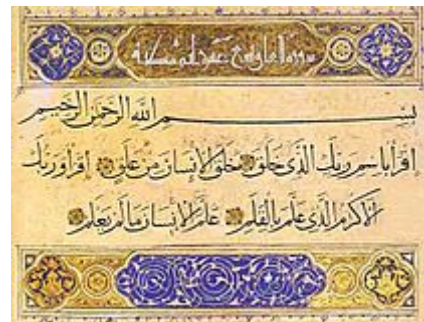 سورة
بسم الله الرحمن الرحيم
اقرا باسم ربك الذي خلق خلق الانسان من علق اقرا وربك
الاكرم الذي علم بالقلم علم الانسان ما لم يعلم